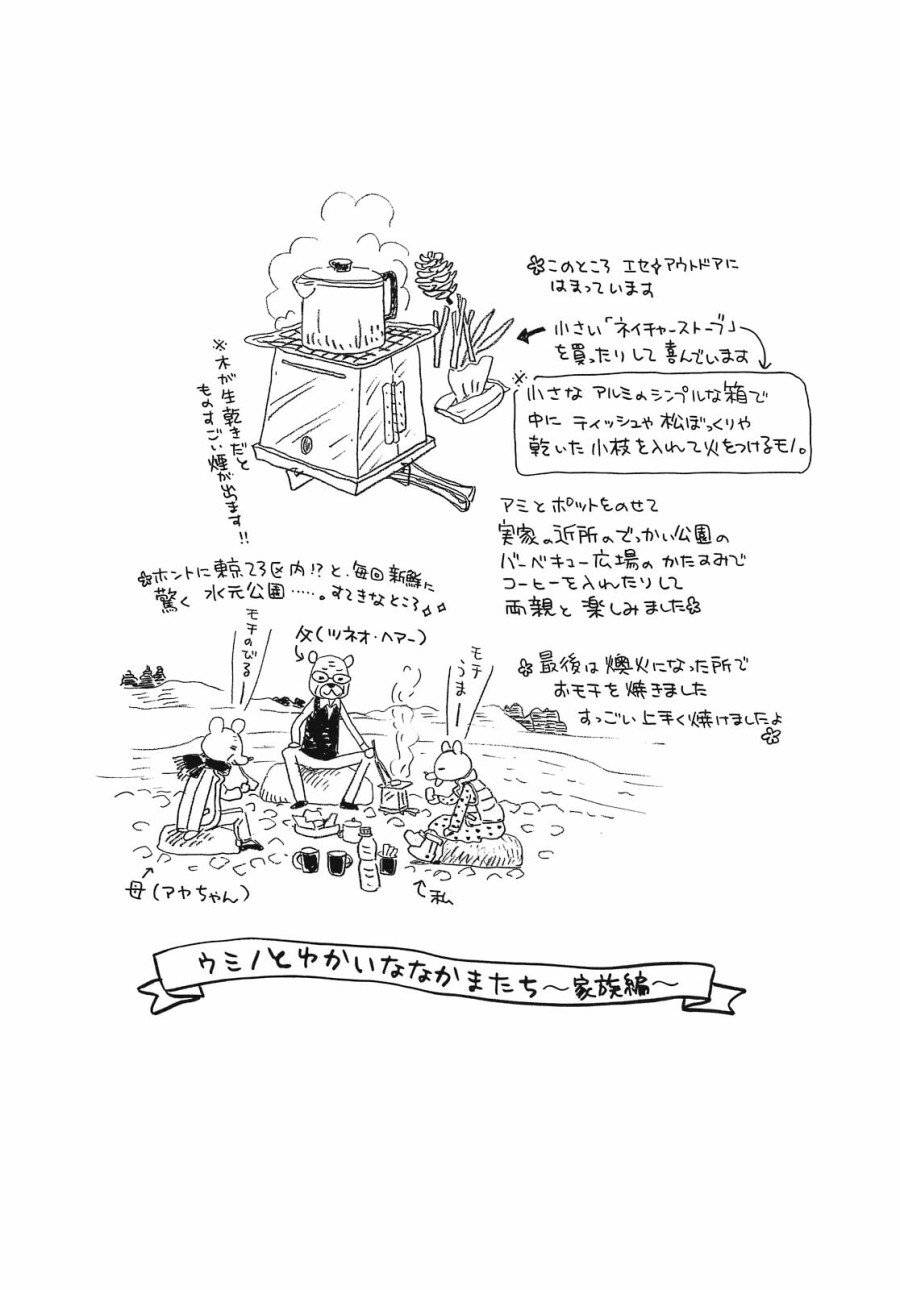 ✿このところ エセ✧アウトドアに
はまっています
小さい「ネイチャーストーブ」
を買ったりして喜んでいます
※
小さな アルミのシンプルな箱で
中に ティッシュや 松ぼっくりや
乾いた小枝を入れて火をつけるモノ。
※木が生乾きだと
ものすごい煙が出ます!!
アミとポットをのせて
実家の近所のでっかい公園の
バーベキュー広場のかたすみで
コーヒーを入れたりして
両親と楽しみました✿
✿ホントに東京23区内!?と、毎回新鮮に
驚く 水元公園……。すてきなところ✧✧
✿最後は熾火になった所で
おモチを焼きました
すっごい上手く焼けましたよ
✿
モチのびるー
父(ツネオ・ヘアー)
モチ
うまー
母(アヤちゃん)
私
ウミノとゆかいななかまたち〜家族編〜